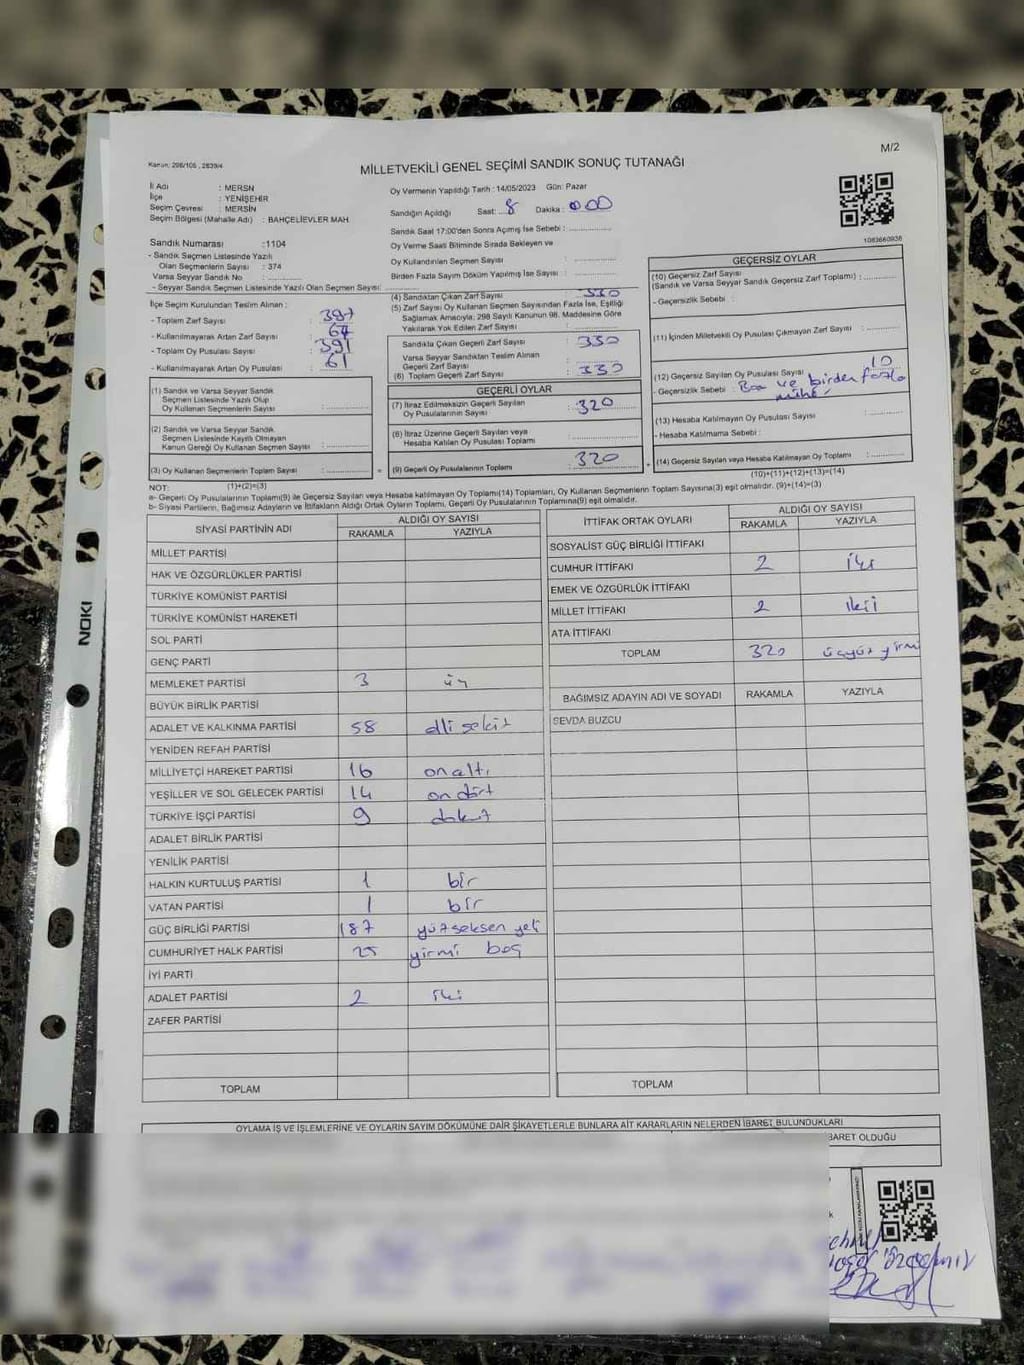 M/2
Kanun: 298/105 , 2839/4
MİLLETVEKİLİ GENEL SEÇİMİ SANDIK SONUÇ TUTANAĞI
İl Adı : MERSN
İlçe : YENİŞEHİR
Seçim Çevresi : MERSİN
Seçim Bölgesi (Mahalle Adı) : BAHÇELİEVLER MAH.
Oy Vermenin Yapıldığı Tarih : 14/05/2023 Gün: Pazar
Sandığın Açıldığı Saat: 8 Dakika: 00
Sandık Saat 17:00'den Sonra Açımış İse Sebebi :
Oy Verme Saati Bitiminde Sırada Bekleyen ve
Oy Kullandırılan Seçmen Sayısı :
Birden Fazla Sayım Döküm Yapılmış İse Sayısı :
1083660938
Sandık Numarası :1104
- Sandık Seçmen Listesinde Yazılı
Olan Seçmenlerin Sayısı : 374
Varsa Seyyar Sandık No :
- Seyyar Sandık Seçmen Listesinde Yazılı Olan Seçmen Sayısı:
İlçe Seçim Kurulundan Teslim Alınan :
- Toplam Zarf Sayısı : 397
- Kullanılmayarak Artan Zarf Sayısı : 64
- Toplam Oy Pusulası Sayısı : 391
- Kullanılmayarak Artan Oy Pusulası : 61
(1) Sandık ve Varsa Seyyar Sandık
Seçmen Listesinde Yazılı Olup
Oy Kullanan Seçmenlerin Sayısı :
(2) Sandık ve Varsa Seyyar Sandık
Seçmen Listesinde Kayıtlı Olmayan
Kanun Gereği Oy Kullanan Seçmen Sayısı :
(3) Oy Kullanan Seçmenlerin Toplam Sayısı :
(1)+(2)=(3)
(4) Sandıktan Çıkan Zarf Sayısı : 330
(5) Zarf Sayısı Oy Kullanan Seçmen Sayısından Fazla İse, Eşitliği
Sağlamak Amacıyla; 298 Sayılı Kanunun 98. Maddesine Göre
Yakılarak Yok Edilen Zarf Sayısı :
Sandıkta Çıkan Geçerli Zarf Sayısı : 330
Varsa Seyyar Sandıktan Teslim Alınan
Geçerli Zarf Sayısı :
(6) Toplam Geçerli Zarf Sayısı : 330
GEÇERLİ OYLAR
(7) İtiraz Edilmeksizin Geçerli Sayılan
Oy Pusulalarının Sayısı : 320
(8) İtiraz Üzerine Geçerli Sayılan veya
Hesaba Katılan Oy Pusulası Toplamı :
(9) Geçerli Oy Pusulalarının Toplamı : 320
GEÇERSİZ OYLAR
(10) Geçersiz Zarf Sayısı
(Sandık ve Varsa Seyyar Sandık Geçersiz Zarf Toplamı) :
- Geçersizlik Sebebi :
(11) İçinden Milletvekili Oy Pusulası Çıkmayan Zarf Sayısı :
(12) Geçersiz Sayılan Oy Pusulası Sayısı : 10
- Geçersizlik Sebebi : Boş ve birden fazla
mühür
(13) Hesaba Katılmayan Oy Pusulası Sayısı :
- Hesaba Katılmama Sebebi :
(14) Geçersiz Sayılan veya Hesaba Katılmayan Oy Toplamı :
(10)+(11)+(12)+(13)=(14)
NOT:
a- Geçerli Oy Pusulalarının Toplamı(9) ile Geçersiz Sayılan veya Hesaba katılmayan Oy Toplamı(14) Toplamları, Oy Kullanan Seçmenlerin Toplam Sayısına(3) eşit olmalıdır. (9)+(14)=(3)
b- Siyasi Partilerin, Bağımsız Adayların ve İttifakların Aldığı Ortak Oyların Toplamı, Geçerli Oy Pusulalarının Toplamına(9) eşit olmalıdır.
SİYASİ PARTİNİN ADI ALDIĞI OY SAYISI
RAKAMLA YAZIYLA
MİLLET PARTİSİ
HAK VE ÖZGÜRLÜKLER PARTİSİ
TÜRKİYE KOMÜNİST PARTİSİ
TÜRKİYE KOMÜNİST HAREKETİ
SOL PARTİ
GENÇ PARTİ
MEMLEKET PARTİSİ 3 üç
BÜYÜK BİRLİK PARTİSİ
ADALET VE KALKINMA PARTİSİ 58 elli sekiz
YENİDEN REFAH PARTİSİ
MİLLİYETÇİ HAREKET PARTİSİ 16 on altı
YEŞİLLER VE SOL GELECEK PARTİSİ 14 on dört
TÜRKİYE İŞÇİ PARTİSİ 9 dokuz
ADALET BİRLİK PARTİSİ
YENİLİK PARTİSİ
HALKIN KURTULUŞ PARTİSİ 1 bir
VATAN PARTİSİ 1 bir
GÜÇ BİRLİĞİ PARTİSİ 187 yüz seksen yedi
CUMHURİYET HALK PARTİSİ 25 yirmi beş
İYİ PARTİ
ADALET PARTİSİ 2 iki
ZAFER PARTİSİ
TOPLAM
İTTİFAK ORTAK OYLARI ALDIĞI OY SAYISI
RAKAMLA YAZIYLA
SOSYALİST GÜÇ BİRLİĞİ İTTİFAKI
CUMHUR İTTİFAKI 2 iki
EMEK VE ÖZGÜRLÜK İTTİFAKI
MİLLET İTTİFAKI 2 iki
ATA İTTİFAKI
TOPLAM 320 üçyüz yirmi
BAĞIMSIZ ADAYIN ADI VE SOYADI RAKAMLA YAZIYLA
SEVDA BUZCU
TOPLAM
OYLAMA İŞ VE İŞLEMLERİNE VE OYLARIN SAYIM DÖKÜMÜNE DAİR ŞİKAYETLERLE BUNLARA AİT KARARLARIN NELERDEN İBARET BULUNDUKLARI
BARET OLDUĞU
NOKI